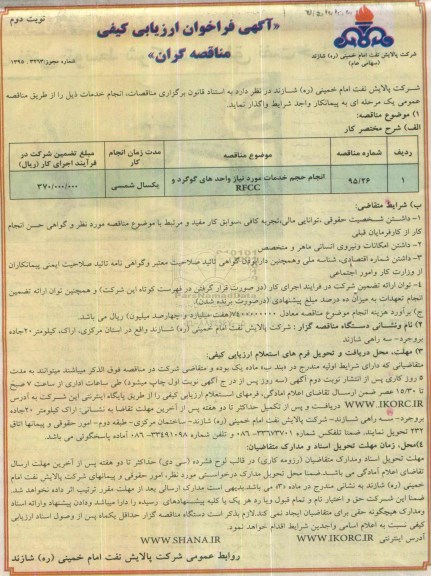 نوبت دوم
«آگهی فراخوان ارزیابی کیفی
مناقصه گران»
شرکت پالایش نفت امام خمینی (ره) شازند
(سهامی عام)
شماره مجوز: ۱۳۹۵
شرکت پالایش نفت امام خمینی (ره) شازند در نظر دارد به استناد قانون برگزاری مناقصات، انجام خدمات ذیل را از طریق مناقصه
عمومی یک مرحله ای به پیمانکار واجد شرایط واگذار نماید.
۱) موضوع مناقصه:
الف) شرح مختصر کار
ردیف شماره مناقصه موضوع مناقصه مدت زمان انجام کار مبلغ تضمین شرکت در فرآیند اجرای کار (ریال)
۱ ۹۵/۲۶ انجام حجم خدمات مورد نیاز واحد های گوگرد و RFCC یکسال شمسی ۳۷۰/۰۰۰/۰۰۰
ب) شرایط متقاضی:
۱- داشتن شخصیت حقوقی ،توانایی مالی،تجربه کافی ،سوابق کار مفید و مرتبط با موضوع مناقصه مورد نظر و گواهی حسن انجام
کار از کارفرمایان قبلی
۲- داشتن امکانات ونیروی انسانی ماهر و متخصص
۳- داشتن شماره اقتصادی، شناسه ملی وهمچنین دارابودن گواهی تائید صلاحیت معتبر وگواهی نامه تائید صلاحیت ایمنی پیمانکاران
از وزارت کار وامور اجتماعی
۴- توان ارائه تضمین شرکت در فرایند اجرای کار (در صورت قرار گرفتن در فهرست کوتاه این شرکت) و همچنین توان ارائه تضمین
انجام تعهدات به میزان ده درصد مبلغ پیشنهادی (درصورت برنده شدن).
ج) برآورد هزینه انجام موضوع مناقصه معادل ۷۴۰۰۰۰۰۰۰۰ (هفت میلیارد و چهارصد میلیون) ریال می باشد.
۲) نام ونشانی دستگاه مناقصه گزار : شرکت پالایش نفت امام خمینی (ره) شازند واقع در استان مرکزی، اراک، کیلومتر ۲۰جاده
بروجرد- سه راهی شازند
۳) مهلت، محل دریافت و تحویل فرم های استعلام ارزیابی کیفی:
متقاضیانی که دارای شرایط اولیه مندرج در بند «ب» ماده یک بوده و متقاضی شرکت در مناقصه فوق الذکر میباشند میتوانند به مدت
۵ روز کاری پس از انتشار نوبت دوم آگهی (سه روز پس از درج آگهی نوبت اول چاپ میشود) طی ساعات اداری از ساعت ۷ صبح
تا ۱۵:۳۰ عصر ضمن ارسال تقاضای اعلام امادگی، فرمهای استعلام ارزیابی کیفی را از طریق پایگاه اینترنتی این شرکت به آدرس
WWW.IKORC.IR دریافت و پس از تکمیل حداکثر تا دو هفته پس از آخرین مهلت تقاضا به نشانی: اراک کیلومتر ۲۰جاده
بروجرد- سه راهی شازند- شرکت پالایش نفت امام خمینی (ره) شازند- ساختمان مرکزی- طبقه دوم- امور حقوقی و پیمانها اتاق
۲۳۲ تحویل نمایند. ضمنا تلفکس شماره ۳۳۶۷۳۷۰۱-۰۸۶ و تلفن شماره ۳۳۴۹۱۰۹۸-۰۸۶ آماده پاسخگوئی می باشد.
۴)محل، زمان مهلت تحویل اسناد و مدارک متقاضیان:
مهلت تحویل اسناد ومدارک متقاضیان (رزومه کاری) در قالب لوح فشرده (سی دی) حداکثر تا دو هفته پس از آخرین مهلت ارسال
تقاضای اعلام آمادگی می باشد.ضمنا محل تحویل مدارک درخواستی مورد نظر، امور حقوقی و پیمانهای شرکت پالایش نفت امام
خمینی (ره) شازند به نشانی مندرج در ماده «۳» می باشد.بدیهی است مدارک ارسالی بعد از مهلت مقرر ترتیب اثر داده نخواهد شد.
ضمنا این شرکت حق و اختیار تام و تمام قبول ویا رد هر یک یا کلیه پیشنهادهای رسیده را دارا میباشد ودادن پیشنهاد وارائه اسناد
ومدارک هیچگونه حقی برای متقاضیان ایجاد نمی کند.لازم بذکر است دستگاه مناقصه گزار حداقل یکماه پس از وصول اسناد ارزیابی
کیفی نسبت به اعلام اسامی واجدین شرایط اقدام خواهد نمود.
آدرس اینترنتی WWW.IKORC.IR WWW.SHANA.IR
روابط عمومی شرکت پالایش نفت امام خمینی (ره) شازند